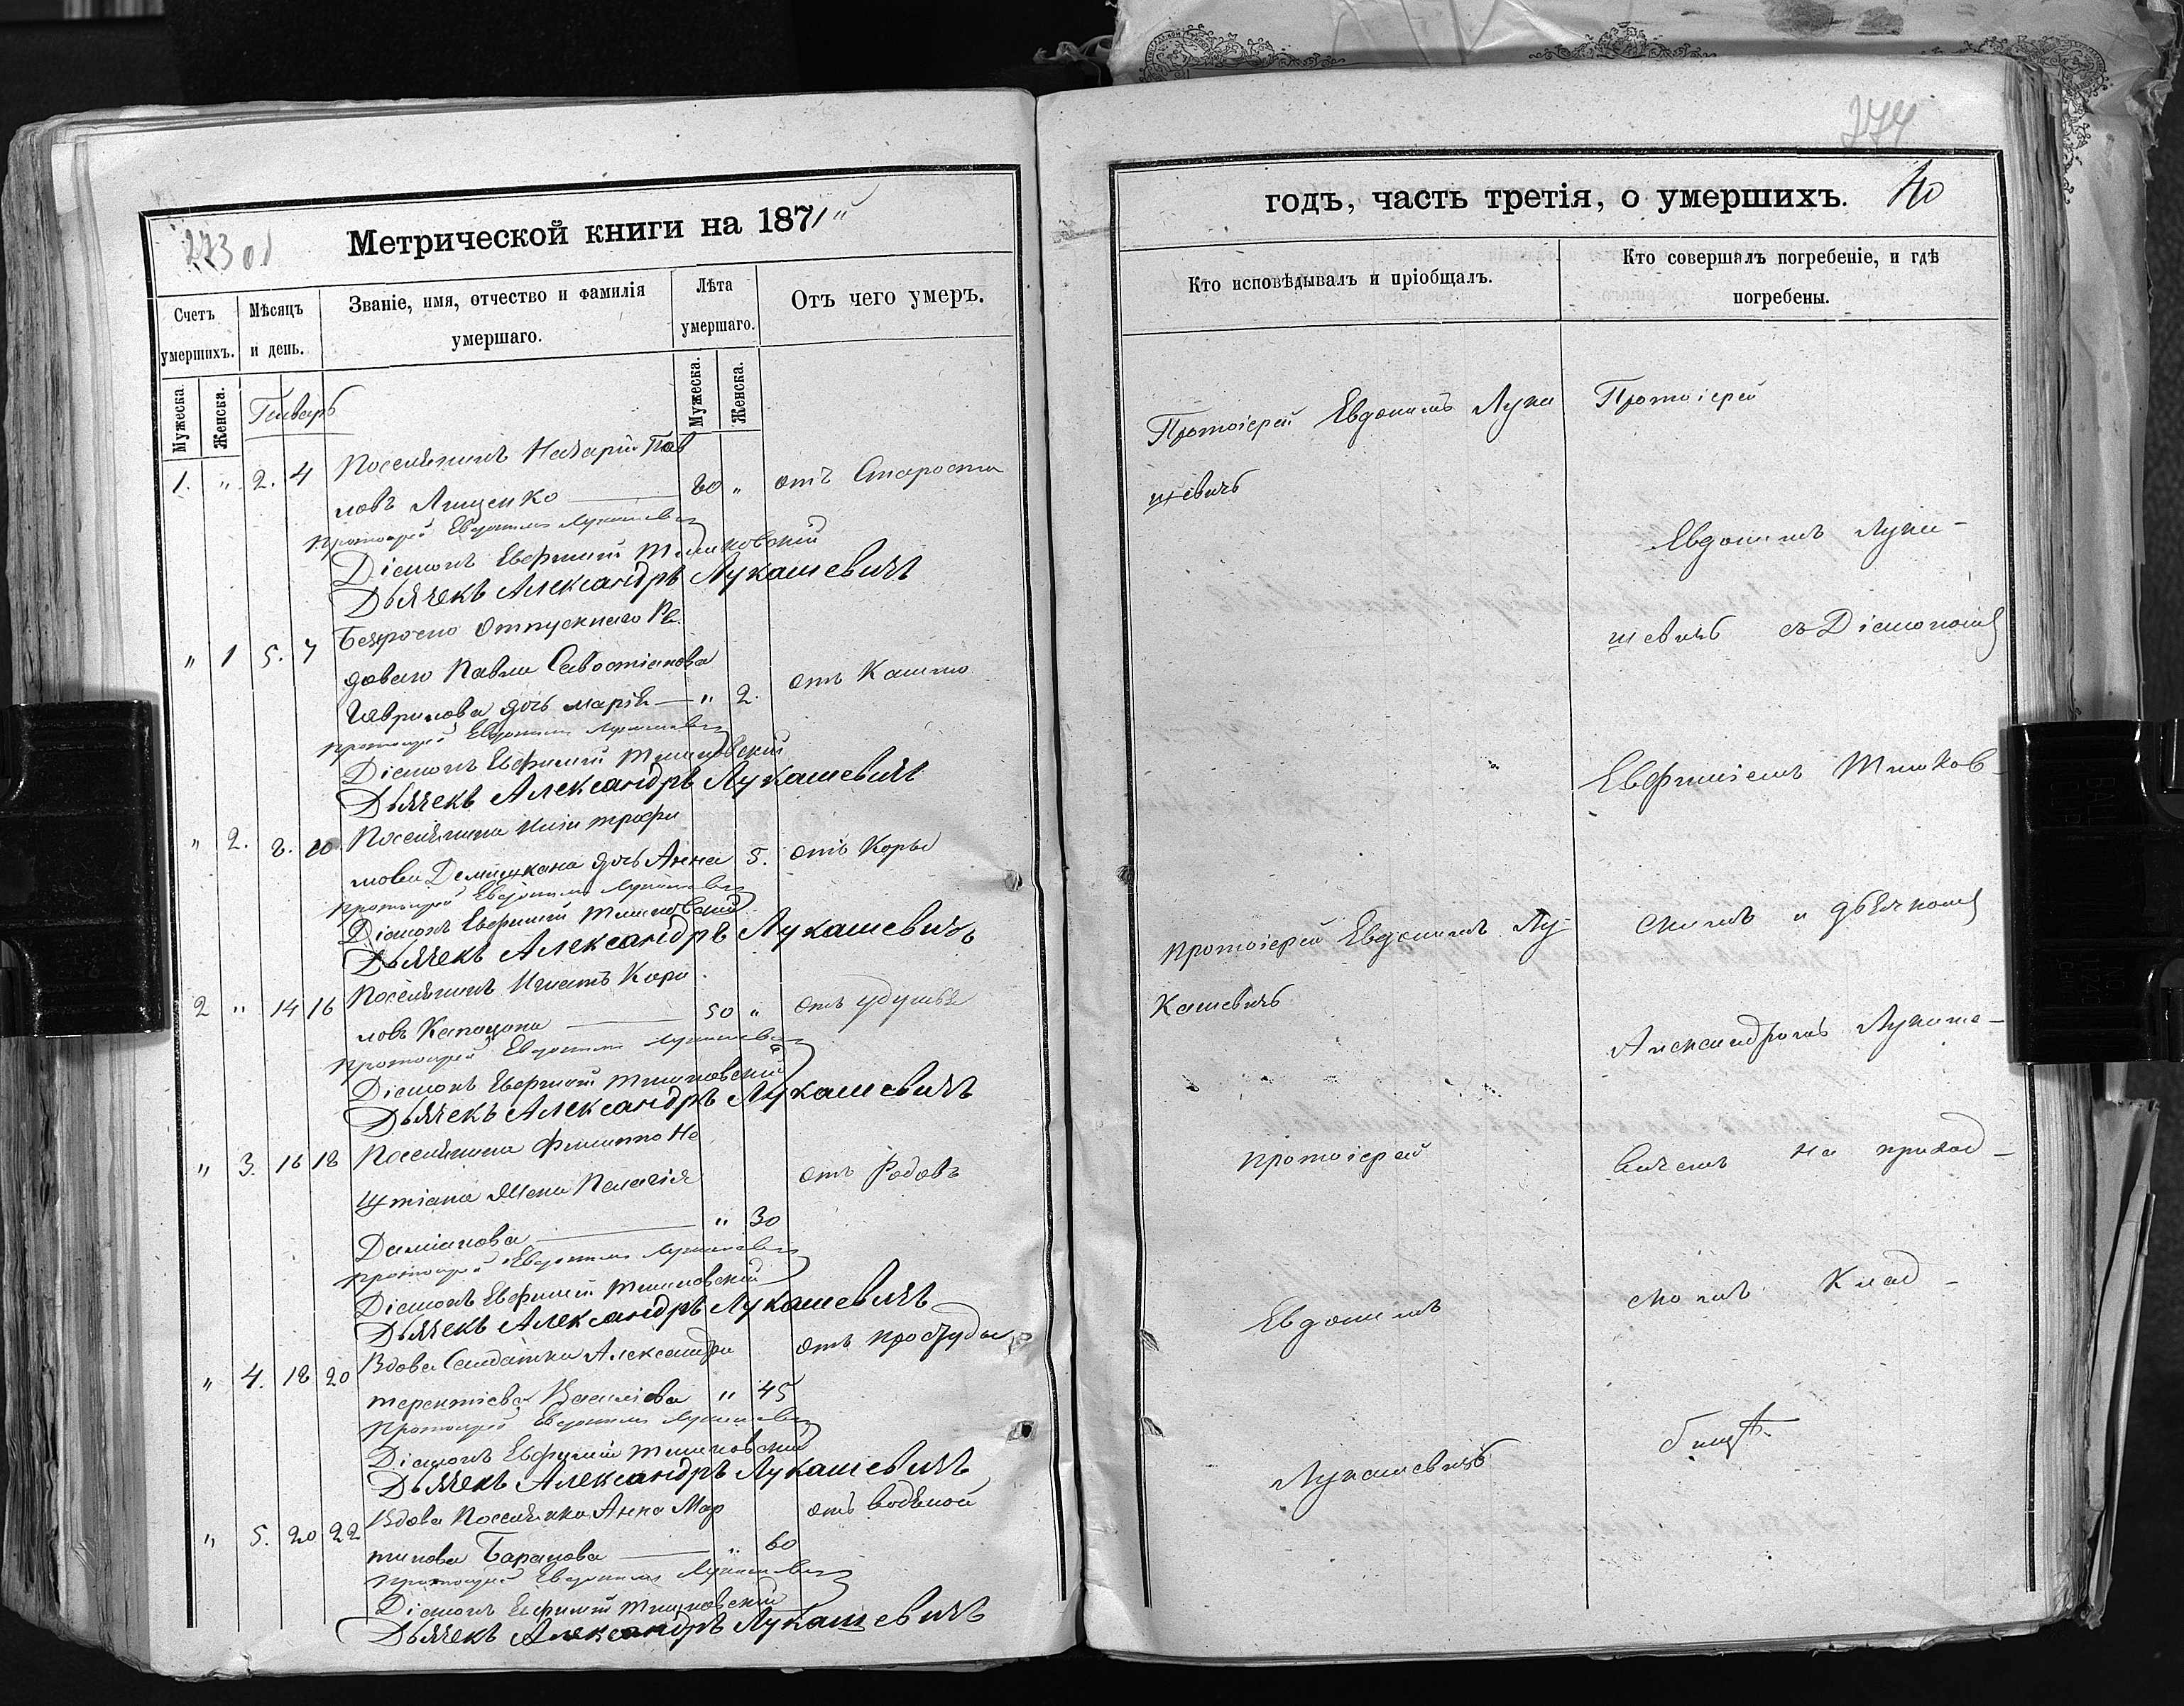 273 об
Метрической книги на 1871
Счетъ умершихъ.
Мѣсяцъ и день.
Званіе, имя, отчество и фамилія умершаго.
Лѣта умершаго.
Отъ чего умеръ.
Мужеска.
Женска.
Мужеска.
Женска.
Январь
1. " 2. 4 Поселянинъ Назарій Пав
ловъ Лященко 80 " отъ Старости
Протоіерей Евдокимъ Лукашевичъ
Діаконъ Евфимій
Дьячекъ Александръ Лукашевичъ
" 1 5. 7 Безсрочно Отпускнаго Ря
доваго Павла Савостіанова
Гаврилова дочь Марія " 2. отъ Кашлю
Протоіерей Евдокимъ Лукашевичъ
Діаконъ Евфимій
Дьячекъ Александръ Лукашевичъ
" 2. 8. 10 Поселянина Иліи Трофи
мова дочь Анна 5. отъ Корьи
Протоіерей Евдокимъ Лукашевичъ
Діаконъ Евфимій
Дьячекъ Александръ Лукашевичъ
2 " 14 16 Поселянинъ Игнатъ Кори
ловъ 50 " отъ удушья
Протоіерей Евдокимъ Лукашевичъ
Діаконъ Евфимій
Дьячекъ Александръ Лукашевичъ
" 3. 16 18 Поселянина Филиппа Не
жена Пелагія отъ Родовъ
Даміанова " 30
Протоіерей Евдокимъ Лукашевичъ
Діаконъ Евфимій
Дьячекъ Александръ Лукашевичъ
" 4. 18 20 Вдова Солдатка Александра отъ простуды
Терентіева Василіева " 45
Протоіерей Евдокимъ Лукашевичъ
Діаконъ Евфимій
Дьячекъ Александръ Лукашевичъ
" 5. 20 22 Вдова Поселянка Анна Мар отъ водяной
тинова Баранова " 60
Протоіерей Евдокимъ Лукашевичъ
Діаконъ Евфимій
Дьячекъ Александръ Лукашевичъ
274
годъ, часть третія, о умершихъ. 40
Кто исповѣдывалъ и пріобщалъ.
Кто совершалъ погребеніе, и гдѣ погребены.
Протоіерей Евдокимъ Лука
шевичъ
Протоіерей Евдокимъ Лу-
кашевичъ
Протоіерей
Евдокимъ
Лукашевичъ
Протоіерей
Евдокимъ Лука-
шевичъ съ Діакономъ
Евфиміемъ
скимъ и дьячкомъ
Александромъ Лукаше-
вичемъ на приход-
скомъ клад-
бищѣ.